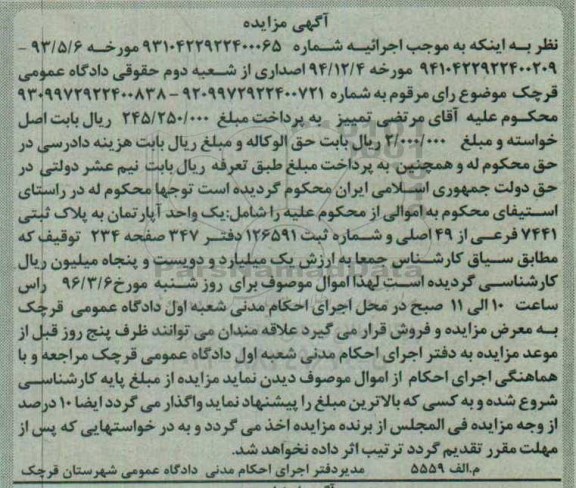 آگهی مزایده
نظر به اینکه به موجب اجرائیه شماره ۹۳۱۰۴۲۲۹۲۲۴۰۰۰۶۵ مورخه ۹۳/۵/۶ –
۹۴۱۰۴۲۲۹۲۲۴۰۰۲۰۹ مورخه ۹۴/۱۲/۴ اصداری از شعبه دوم حقوقی دادگاه عمومی
قرچک موضوع رای مرقوم به شماره ۹۲۰۹۹۷۲۹۲۲۴۰۰۷۲۱ – ۹۳۰۹۹۷۲۹۲۲۴۰۰۸۳۸
محکوم علیه آقای مرتضی تمییز به پرداخت مبلغ ۲۴۵/۲۵۰/۰۰۰ ریال بابت اصل
خواسته و مبلغ ۲/۰۰۰/۰۰۰ ریال بابت حق الوکاله و مبلغ ریال بابت هزینه دادرسی در
حق محکوم له و همچنین به پرداخت مبلغ طبق تعرفه ریال بابت نیم عشر دولتی در
حق دولت جمهوری اسلامی ایران محکوم گردیده است توجها محکوم له در راستای
استیفای محکوم به اموالی از محکوم علیه را شامل: یک واحد آپارتمان به پلاک ثبتی
۷۴۴۱ فرعی از ۴۹ اصلی و شماره ثبت ۱۲۶۵۹۱ دفتر ۳۴۷ صفحه ۲۳۴ توقیف که
مطابق سیاق کارشناس جمعا به ارزش یک میلیارد و دویست و پنجاه میلیون ریال
کارشناسی گردیده است لهذا اموال موصوف برای روز شنبه مورخ ۹۶/۳/۶ راس
ساعت ۱۰ الی ۱۱ صبح در محل اجرای احکام مدنی شعبه اول دادگاه عمومی قرچک
به معرض مزایده و فروش قرار می گیرد علاقه مندان می توانند ظرف پنج روز قبل از
موعد مزایده به دفتر اجرای احکام مدنی شعبه اول دادگاه عمومی قرچک مراجعه و با
هماهنگی اجرای احکام از اموال موصوف دیدن نماید مزایده از مبلغ پایه کارشناسی
شروع شده و به کسی که بالاترین مبلغ را پیشنهاد نماید واگذار می گردد ایضا ۱۰ درصد
از وجه مزایده فی المجلس از برنده مزایده اخذ می گردد و به در خواستهایی که پس از
مهلت مقرر تقدیم گردد ترتیب اثر داده نخواهد شد.
م.الف ۵۵۵۹ مدیردفتر اجرای احکام مدنی دادگاه عمومی شهرستان قرچک